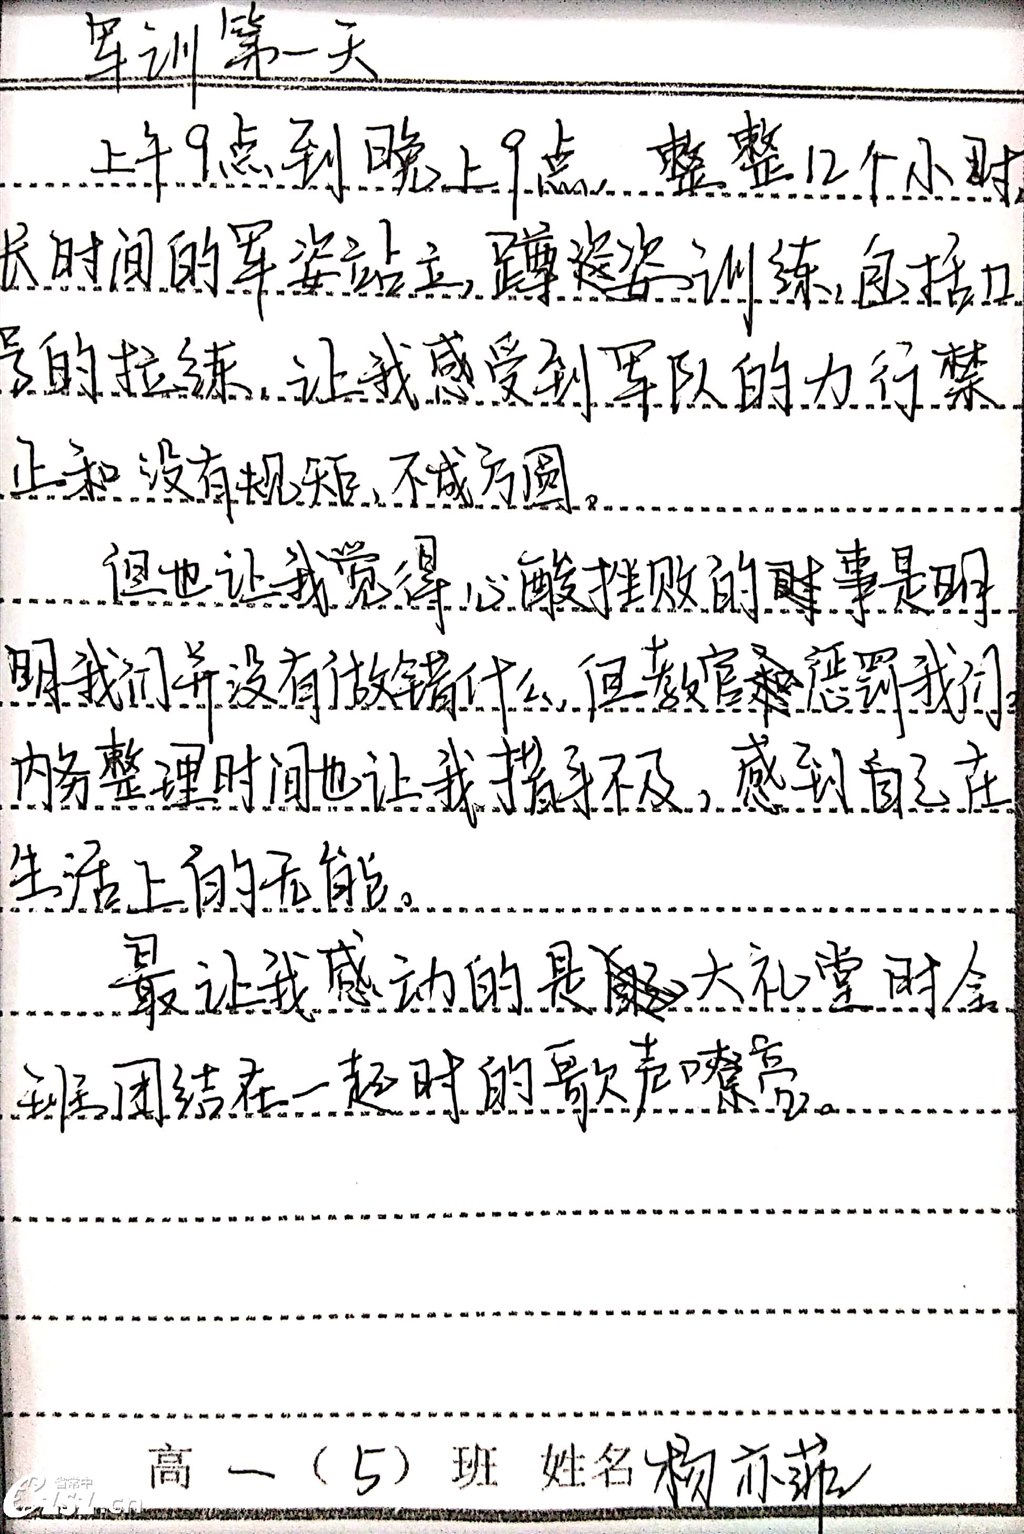 军训第一天
上午9点到晚上9点，整整12个小时，
长时间的军姿站立，蹲姿训练，包括口
号的拉练，让我感受到军队的力行禁
止和没有规矩，不成方圆。
但也让我觉得心酸挫败的事是明
明我们并没有做错什么，但教官惩罚我们。
内务整理时间也让我措手不及，感到自己在
生活上的无能。
最让我感动的是大礼堂时全
班团结在一起时的歌声嘹亮。
高一（5）班 姓名 杨亦菲
省常中